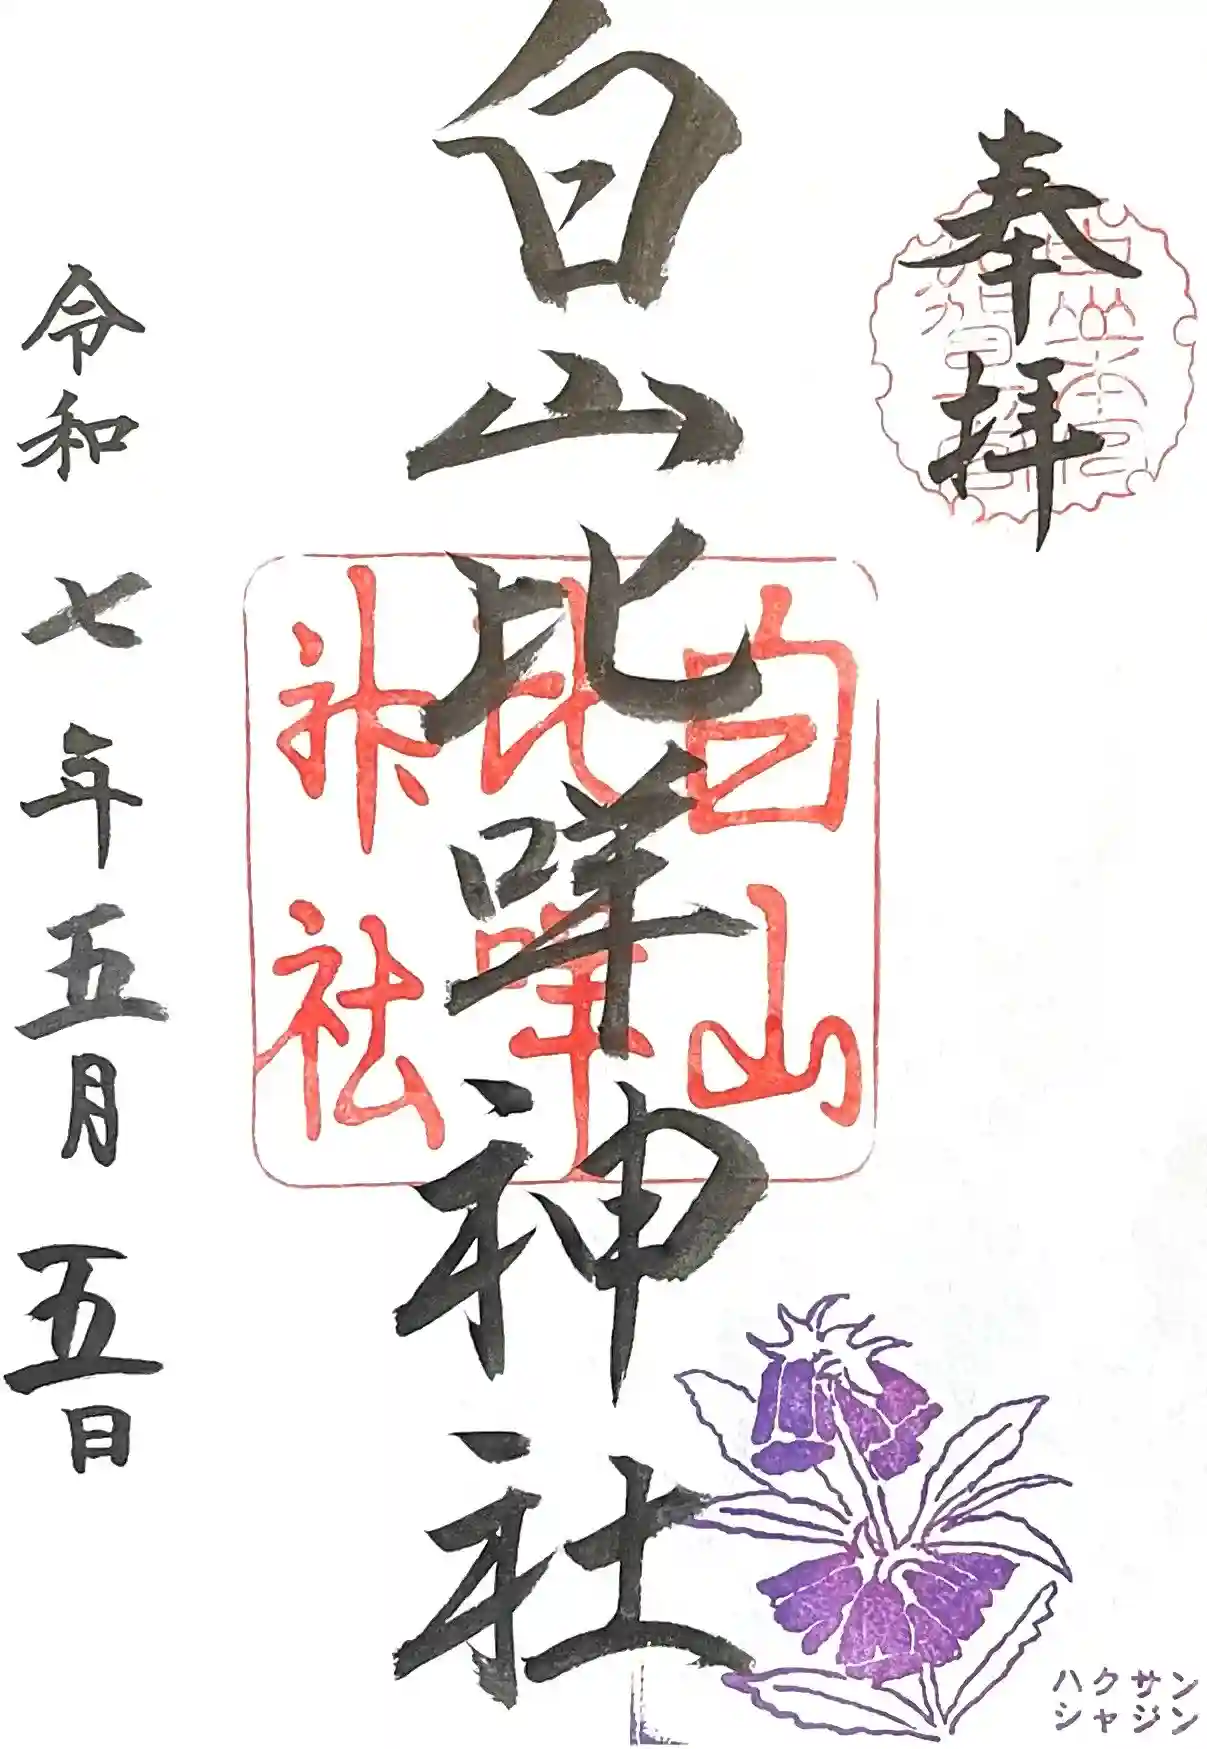 奉拝
白山比咩神社
令和七年五月五日
白山
比咩
神社
ハクサン
シャジン